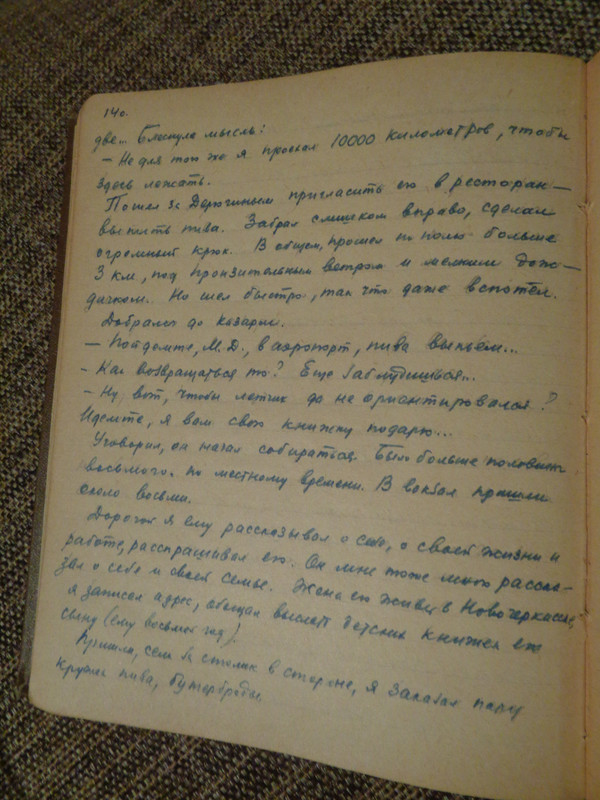 140.
две... Блеснула мысль:
— Не для того же я проехал 10000 километров, чтобы
здесь лежать.
Пошел за Дорогиным пригласить его в ресторан —
выпить пива. Забрал слишком вправо, сделал
огромный крюк. В общем, прошел по полю больше
3 км, под пронзительным ветром и мелким дож-
дичком. Но шел быстро, так что даже вспотел.
Добрался до казармы.
— Пойдемте, М.Д., в аэропорт, пива выпьем...
— Как возвращаться то? Еще заблудишься...
— Ну вот, чтобы летчик да не ориентировался?
Идемте, я вам свою книжку подарю...
Уговорил, он начал собираться. Было больше половины
восьмого, по местному времени. В вокзал пришли
около восьми.
Дорогой я ему рассказывал о себе, о своей жизни и
работе, расспрашивал его. Он мне тоже много расска-
зал о себе и своей семье. Жена его живет в Новочеркасске,
я записал адрес, обещал выслать детских книжек его
сыну (ему восьмой год).
Пришли, сели за столик в стороне, я заказал пару
кружек пива, бутерброды.